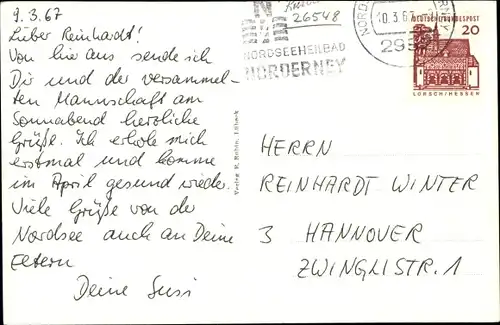 9.3.67
Lieber Reinhardt!
Von hier aus sende ich
Dir und der versammel-
ten Mannschaft am
Sonnabend herzliche
Grüße. Ich erhole mich
erstmal und komme
im April gesund wieder.
Viele Grüße von der
Nordsee auch an Deine
Eltern
Deine Susi
26548
NORDSEEHEILBAD
NORDERNEY
10.3.67
DEUTSCHE BUNDESPOST
20
LORSCH/HESSEN
HERRN
REINHARDT WINTER
3 HANNOVER
ZWINGLISTR. 1